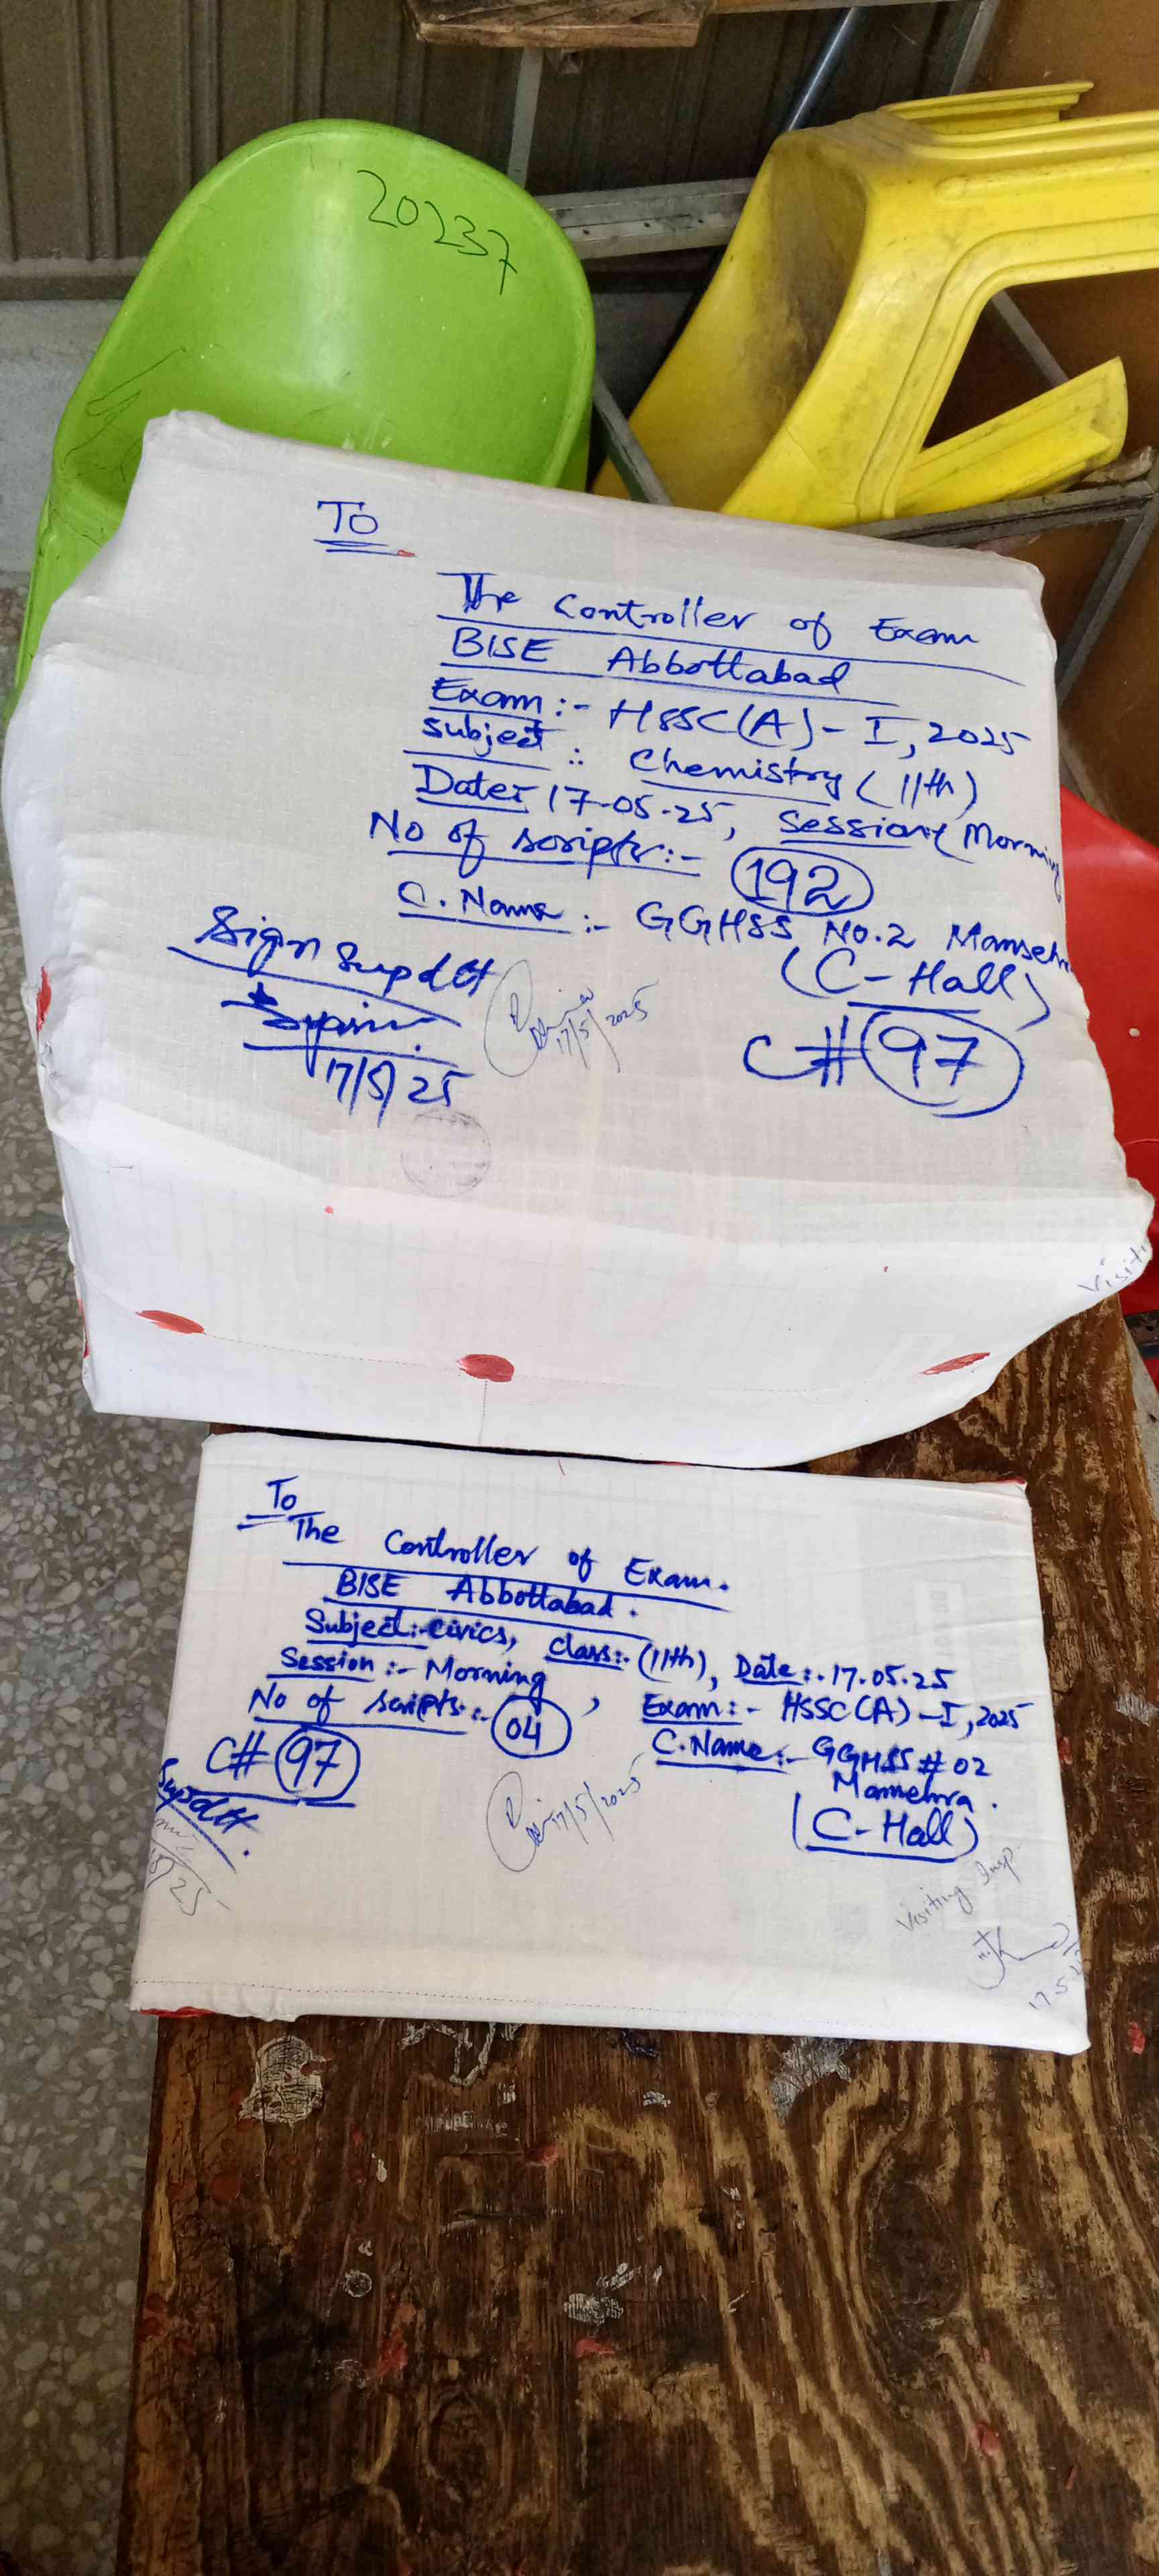 20237
To
The Controller of Exam
BISE Abbottabad
Exam:- HSSC(A)-I, 2025
Subject :- Chemistry (11th)
Date:- 17-05-25, Session (Morning
No of scripts:- 192
C. Name :- GGHSS No.2 Mansehra
(C-Hall)
C# 97
Sign Supdtt
17/5/25
17/5/2025
Visiti
To
The Controller of Exam.
BISE Abbottabad.
Subject:- Civics, Class:- (11th), Date:- 17.05.25
Session :- Morning, Exam:- HSSC(A)-I, 2025
No of scripts:- 04
C.Name:- GGHSS # 02
Mansehra.
(C-Hall)
C# 97
Supdtt.
17/5/2025
Visiting Insp.
17.5.2